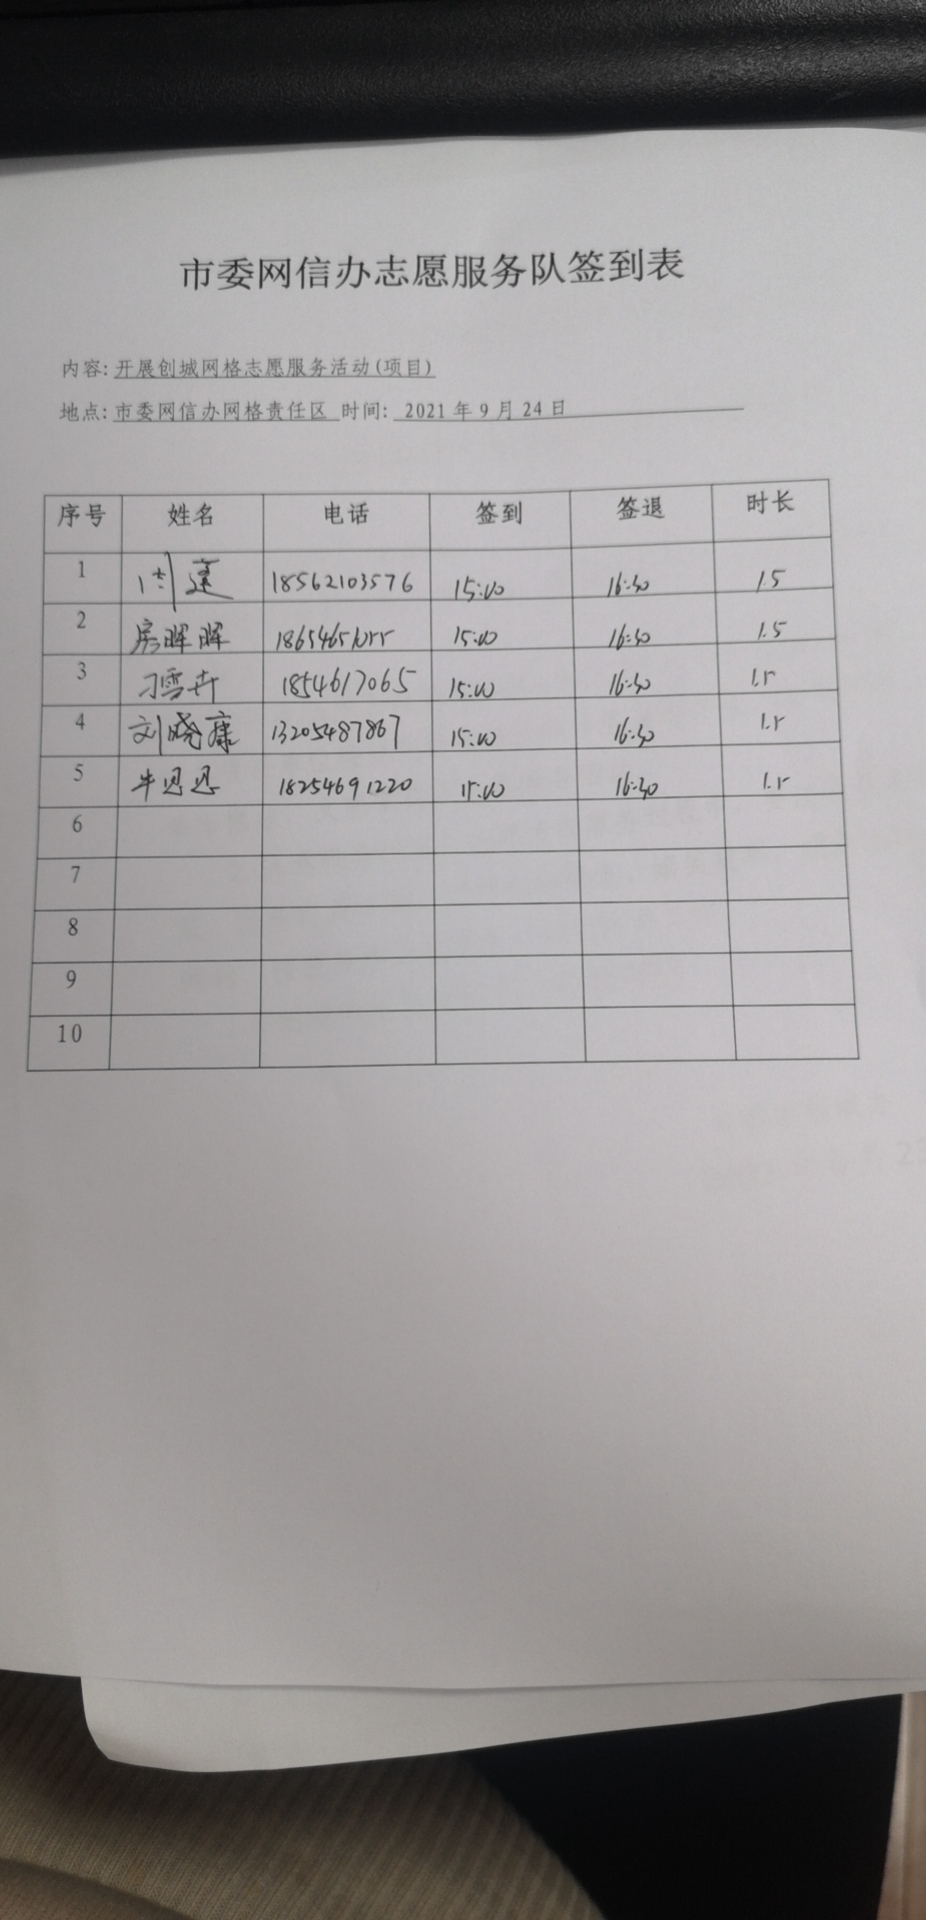 市委网信办志愿服务队签到表
内容:开展创城网格志愿服务活动(项目)
地点:市委网信办网格责任区 时间: 2021年9月24日
序号 姓名 电话 签到 签退 时长
1 18562103576 15:00 16:30 1.5
2 房晖晖 15:00 16:30 1.5
3 刁雪卉 1854617065 15:00 16:30 1.5
4 刘晓康 13205487867 15:00 16:30 1.5
5 牛恩恩 18254691220 15:00 16:30 1.5
6
7
8
9
10